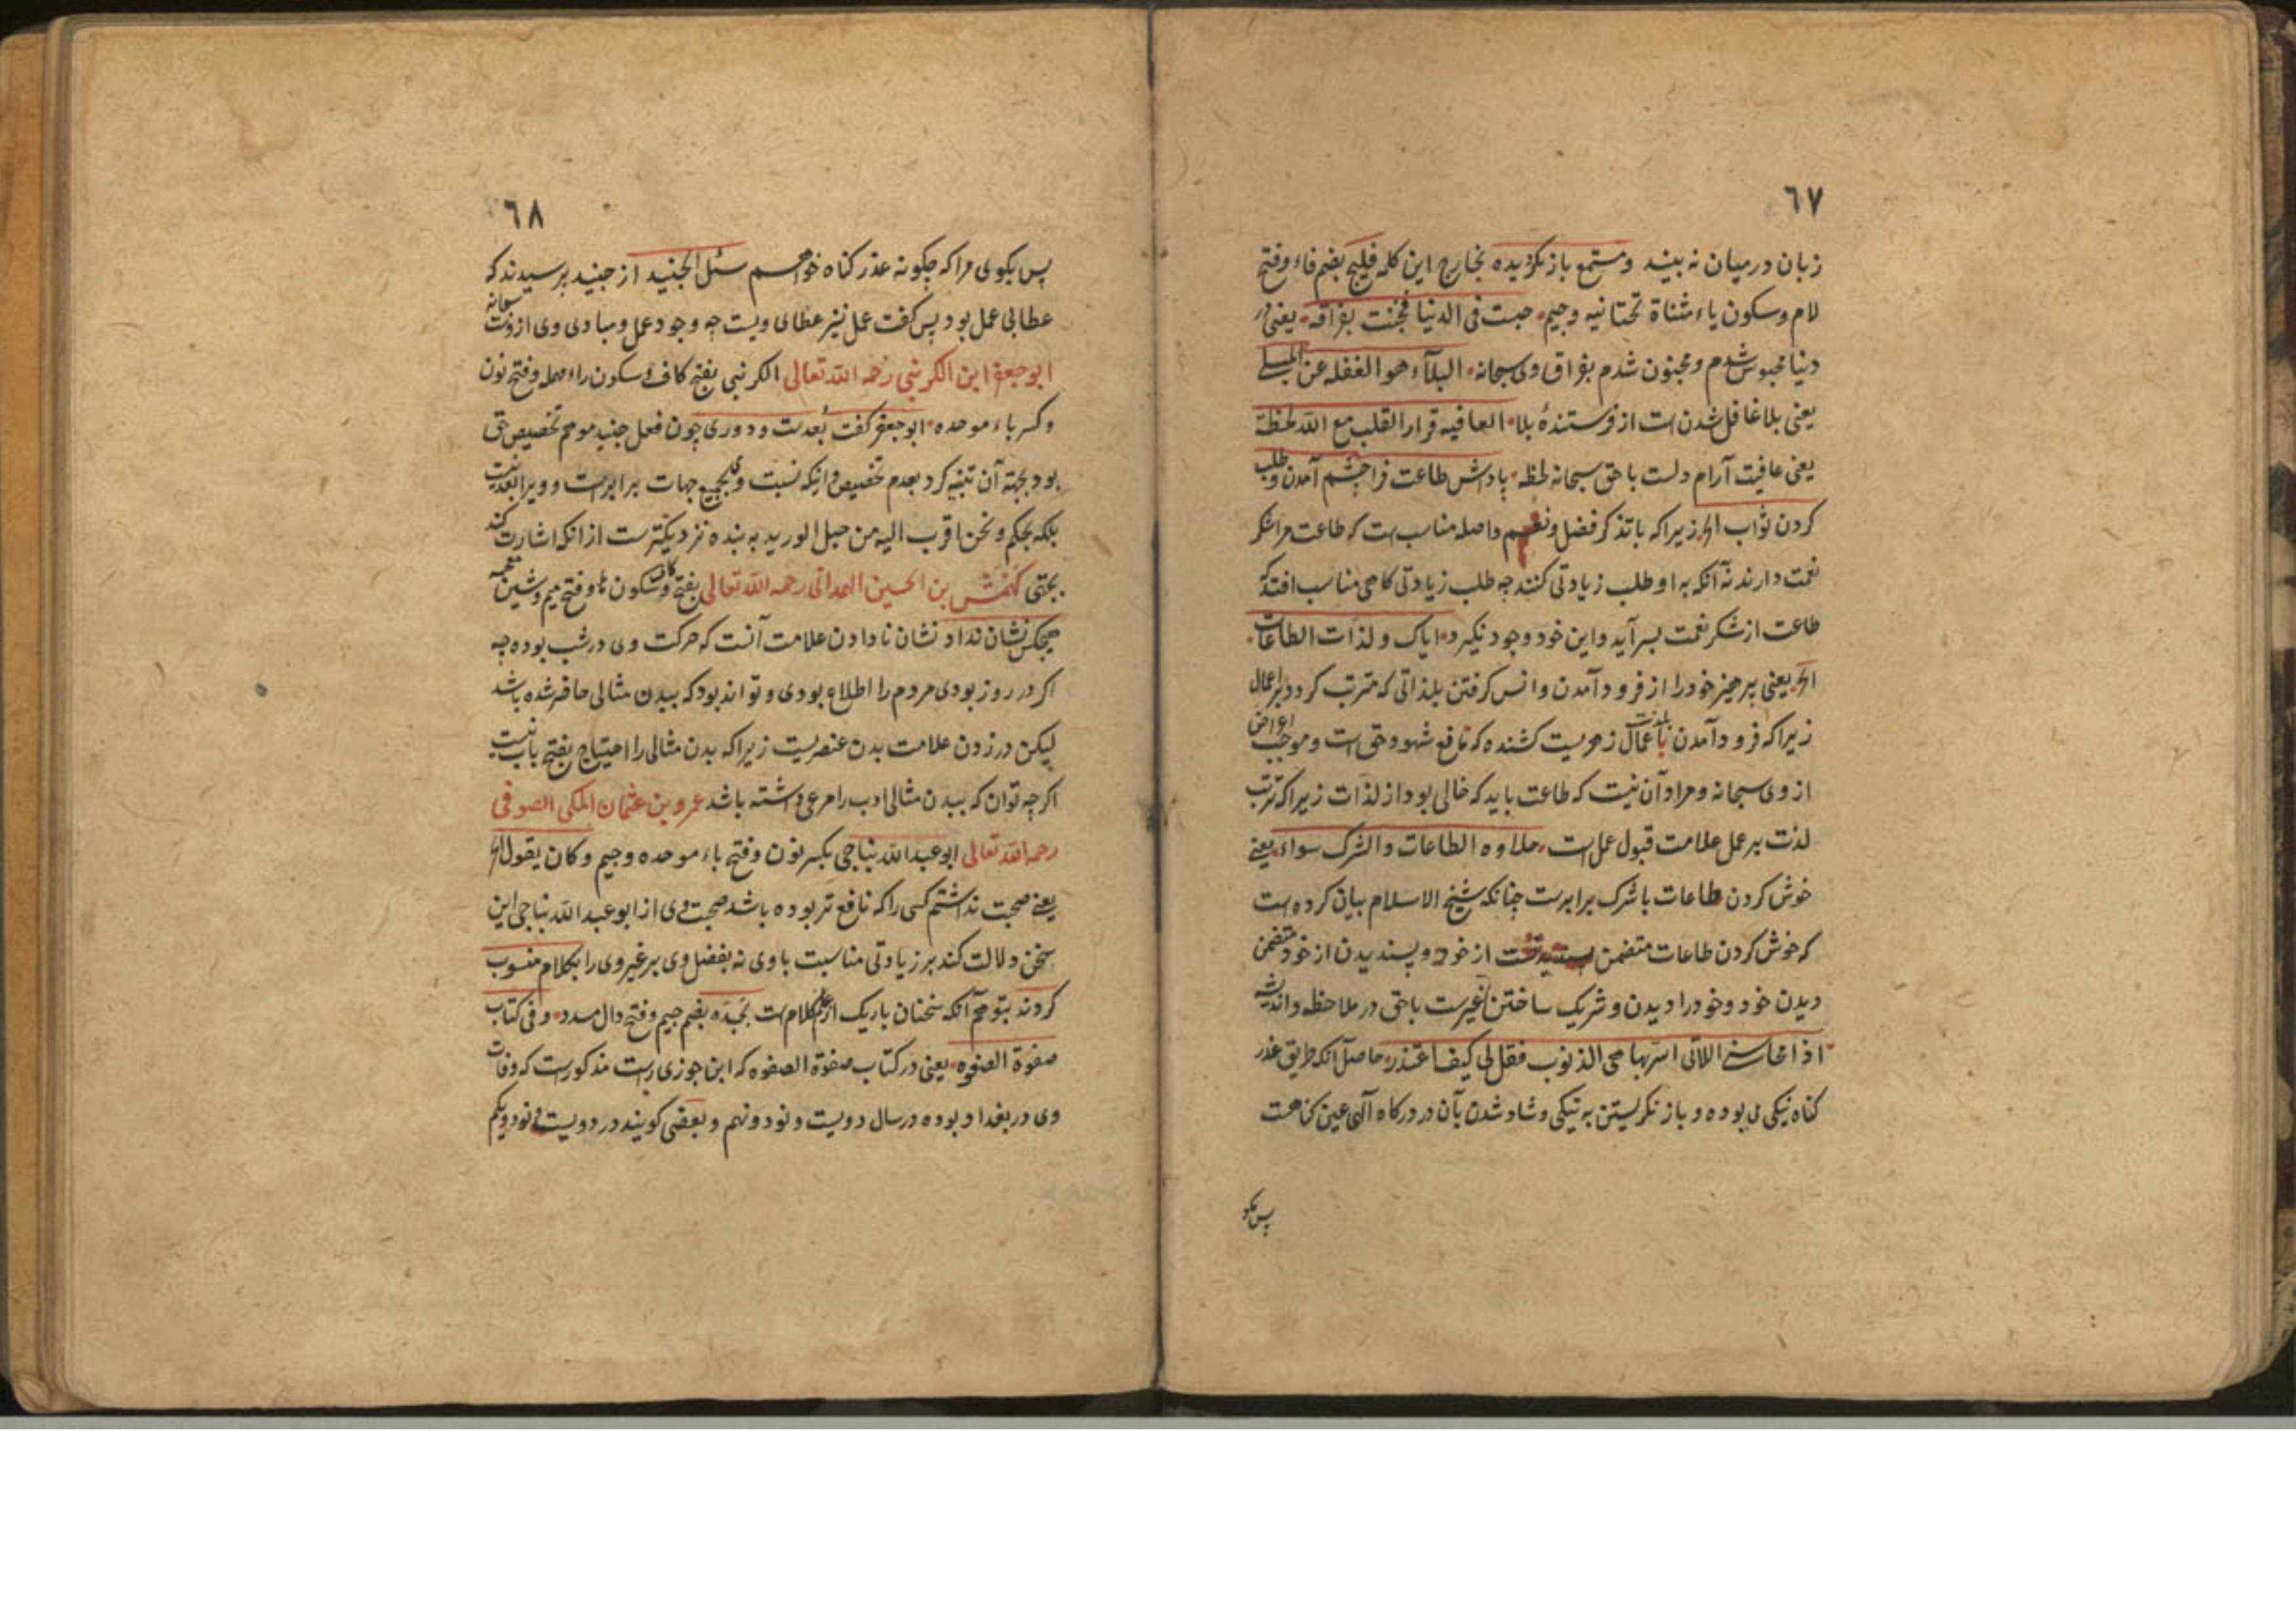 ٦٧
زبان در میان نه بیند و مستمع باز نگردیده بخارج این کلمه فلیج بضم فاء و فتح
لام و سکون یاء مثناة تحتانیه و جیم حبست فی الدنیا فجننت بفراقه یعنی در
دنیا محبوس شدم و مجنون شدم بفراق وی سبحانه البلآء هو الغفله عن المبلی
یعنی بلا غافل شدن است از فرستندهٔ بلا العافیه قرار القلب مع الله لحظة
یعنی عافیت آرام دلست با حق سبحانه لحظه پاداش طاعت فراچشم آمدن و طلب
کردن ثواب الخ زیرا که با تذکر فضل و نعیم واصله مناسب است که طاعت مر شکر
نعمت دارند نه آنکه به او طلب زیادتی کنند چه طلب زیادتی کاهی مناسب افتد که
طاعت از شکر نعمت بسر آید و این خود وجود نگیرد ایاک و لذات الطاعات
الخ یعنی پرهیز خود را از فرود آمدن و انس کرفتن بلذاتی که مترتب کردد بر اعمال
زیرا که فرود آمدن بلذت اعمال زهریست کشنده که مانع شهود حق است و موجب اعراض
از وی سبحانه و مراد آن نیست که طاعت باید که خالی بود از لذات زیرا که ترتب
لذت بر عمل علامت قبول عمل است حلاوه الطاعات و الشرک سواء یعنی
خوش کردن طاعات با شرک برابرست چنانکه شیخ الاسلام بیان کرده است
که خوش کردن طاعات متضمن از خود و پسندیدن از خود متضمن
دیدن خود و خود را دیدن و شریک ساختن غیرست با حق در ملاحظه و اندیشه
اذا محاسنی اللاتی اسر بها هی الذنوب فقل لی کیف اعتذر حاصل آنکه طریق عذر
کناه نیکی می بوده و باز نکریستن به نیکی و شاد شدن بآن در درکاه آلهی عین کناهست
پس بکو
٦٨
پس بکوی مرا که چکونه عذر کناه خواهم سئل الجنید از جنید پرسیدند که
عطا بی عمل بود پس کفت عمل نیز عطای ویست چه وجود عمل و مبادی وی ازوست سبحانه
ابوجعفر ابن الکرنبی رحمه الله تعالی الکرنبی بفتح کاف و سکون راء مهمله و فتح نون
و کسر باء موحده ابوجعفر کفت بعدست و دوری چون فعل جنید موهم تخصیص حق
بود بجهة آن تنبیه کرد بعدم تخصیص و اینکه نسبت وی بجمیع جهات برابرست و ویرا بعد نیست
بلکه بحکم و نحن اقرب الیه من حبل الورید به بنده نزدیکترست از انکه اشارت کند
بحتی کهمش بن الحسین الهمدانی رحمه الله تعالی بفتح کاف و سکون ها و فتح میم و شین معجمه
هیچکس نشان نداد نشان نادادن علامت آنست که حرکت وی در شب بوده چه
اکر در روز بودی مردم را اطلاع بودی و تواند بود که ببدن مثالی حاضر شده باشد
لیکن در زدن علامت بدن عنصریست زیرا که بدن مثالی را احتیاج بفتح باب نیست
اکرچه توان که ببدن مثالی ادب را مرعی داشته باشد عمرو بن عثمان المکی الصوفی
رحمه الله تعالی ابوعبدالله نباجی بکسر نون و فتح باء موحده و جیم و کان یقول الخ
یعنی صحبت نداشتم کسی را که نافع تر بوده باشد صحبت وی از ابوعبدالله نباجی این
سخن دلالت کند بر زیادتی مناسبت با وی نه بفضل وی بر غیر وی را بکلام منسوب
کردند بتوهم آنکه سخنان باریک از علم کلام است بجده بضم جیم و فتح دال مسدد و فی کتاب
صفوة الصفوه یعنی در کتاب صفوة الصفوه که ابن جوزی راست مذکورست که وفات
وی در بغداد بوده در سال دویست و نود و نهم و بعضی کویند در دویست و نود و یکم